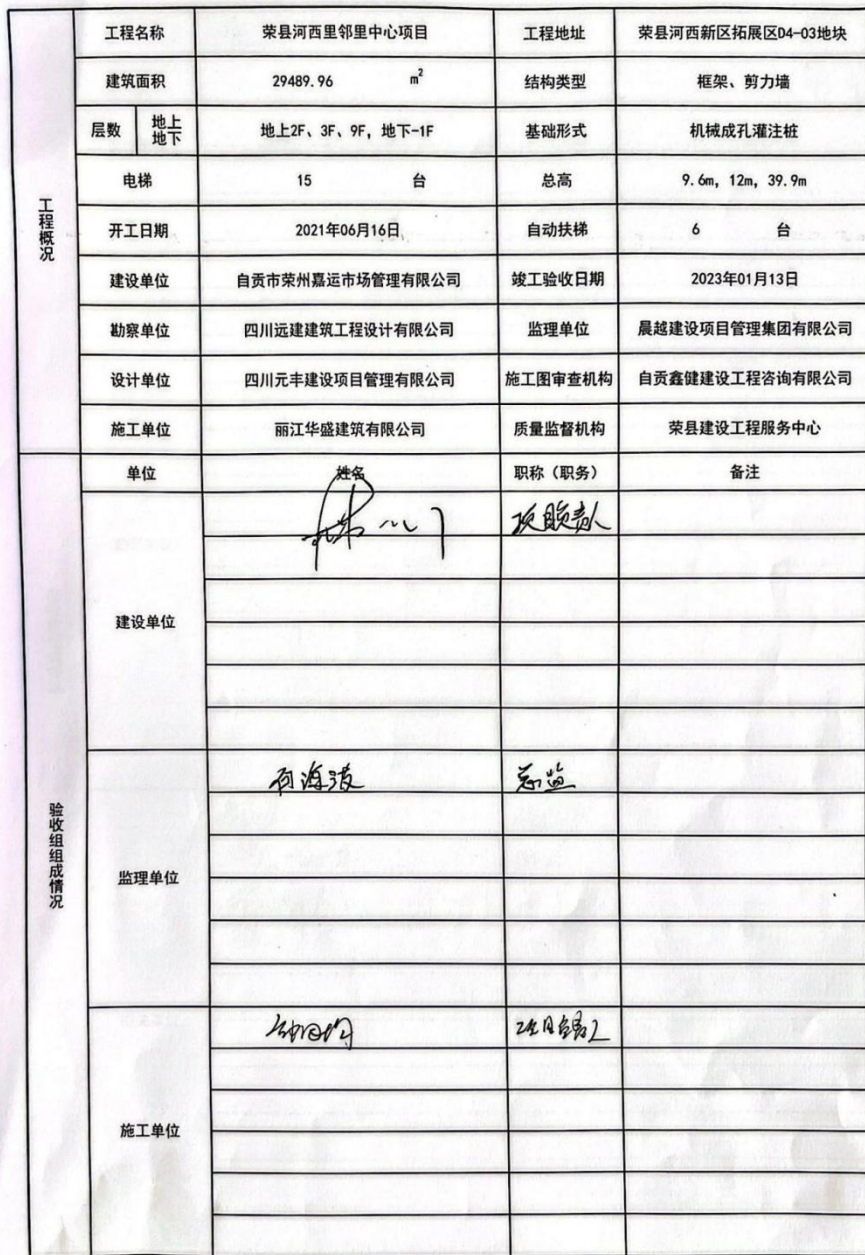 工程名称 荣县河西里邻里中心项目 工程地址 荣县河西新区拓展区D4-03地块
建筑面积 29489.96 m² 结构类型 框架、剪力墙
层数 地上 地下 地上2F、3F、9F，地下-1F 基础形式 机械成孔灌注桩
电梯 15 台 总高 9.6m, 12m, 39.9m
工程概况
开工日期 2021年06月16日 自动扶梯 6 台
建设单位 自贡市荣州嘉运市场管理有限公司 竣工验收日期 2023年01月13日
勘察单位 四川远建建筑工程设计有限公司 监理单位 晨越建设项目管理集团有限公司
设计单位 四川元丰建设项目管理有限公司 施工图审查机构 自贡鑫健建设工程咨询有限公司
施工单位 丽江华盛建筑有限公司 质量监督机构 荣县建设工程服务中心
单位 姓名 职称（职务） 备注
建设单位
总监
验收组组成情况
监理单位
施工单位